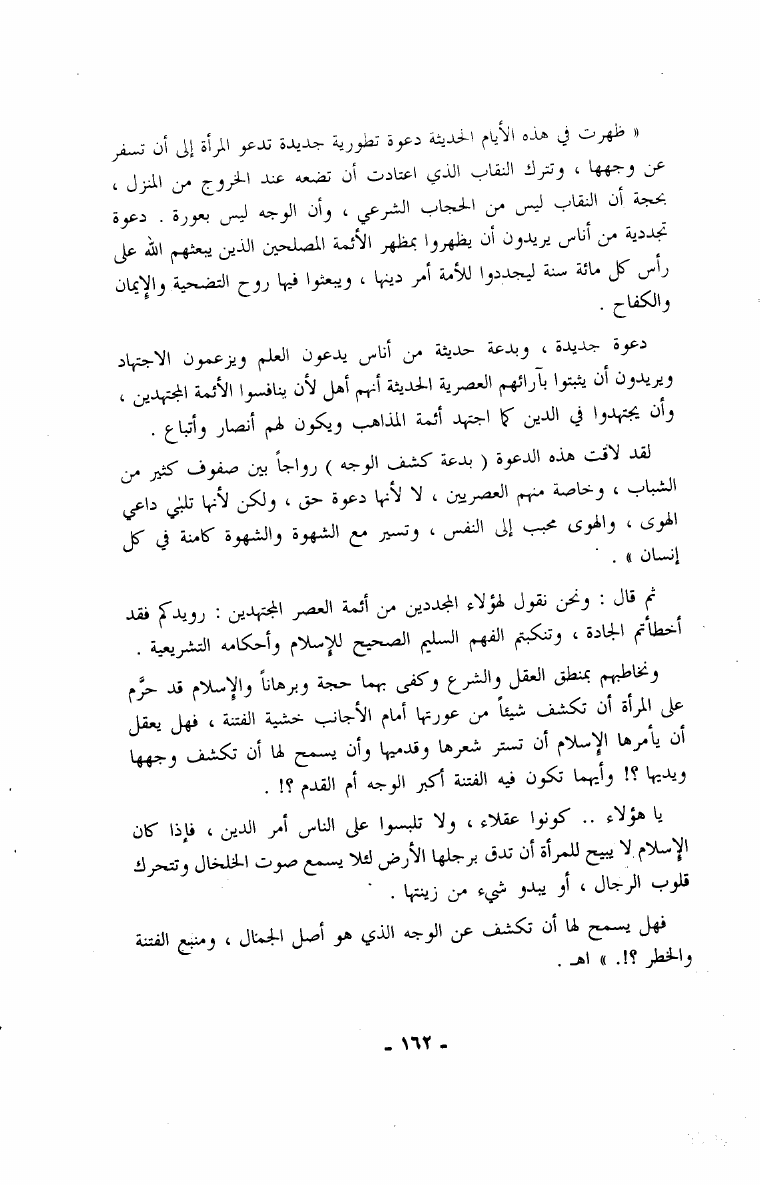 « ظهرت في هذه الأيام الحديثة دعوة تطورية جديدة تدعو المرأة إلى أن تسفر
عن وجهها ، وتترك النقاب الذي اعتادت أن تضعه عند الخروج من المنزل ،
بحجة أن النقاب ليس من الحجاب الشرعي ، وأن الوجه ليس بعورة . دعوة
تجددية من أناس يريدون أن يظهروا بمظهر الأئمة المصلحين الذين يبعثهم الله على
رأس كل مائة سنة ليجددوا للأمة أمر دينها ، ويبعثوا فيها روح التضحية والإيمان
والكفاح .
دعوة جديدة ، وبدعة حديثة من أناس يدعون العلم ويزعمون الاجتهاد
ويريدون أن يثبتوا بآرائهم العصرية الحديثة أنهم أهل لأن ينافسوا الأئمة المجتهدين ،
وأن يجتهدوا في الدين كما اجتهد أئمة المذاهب ويكون لهم أنصار وأتباع .
لقد لاقت هذه الدعوة ( بدعة كشف الوجه ) رواجاً بين صفوف كثير من
الشباب ، وخاصة منهم العصريين ، لا لأنها دعوة حق ، ولكن لأنها تلبي داعي
الهوى ، والهوى محبب إلى النفس ، وتسير مع الشهوة والشهوة كامنة في كل
إنسان » .
ثم قال : ونحن نقول لهؤلاء المجددين من أئمة العصر المجتهدين : رويدكم فقد
أخطأتم الجادة ، وتنكبتم الفهم السليم الصحيح للإسلام وأحكامه التشريعية .
ونخاطبهم بمنطق العقل والشرع وكفى بهما حجة وبرهاناً والإسلام قد حرَّم
على المرأة أن تكشف شيئاً من عورتها أمام الأجانب خشية الفتنة ، فهل يعقل
أن يأمرها الإسلام أن تستر شعرها وقدميها وأن يسمح لها أن تكشف وجهها
ويديها ؟! وأيهما تكون فيه الفتنة أكبر الوجه أم القدم ؟! .
يا هؤلاء .. كونوا عقلاء ، ولا تلبسوا على الناس أمر الدين ، فإذا كان
الإسلام لا يبيح للمرأة أن تدق برجلها الأرض لئلا يسمع صوت الخلخال وتتحرك
قلوب الرجال ، أو يبدو شيء من زينتها .
فهل يسمح لها أن تكشف عن الوجه الذي هو أصل الجمال ، ومنبع الفتنة
والخطر ؟!. » اهـ .
- ١٦٢ -